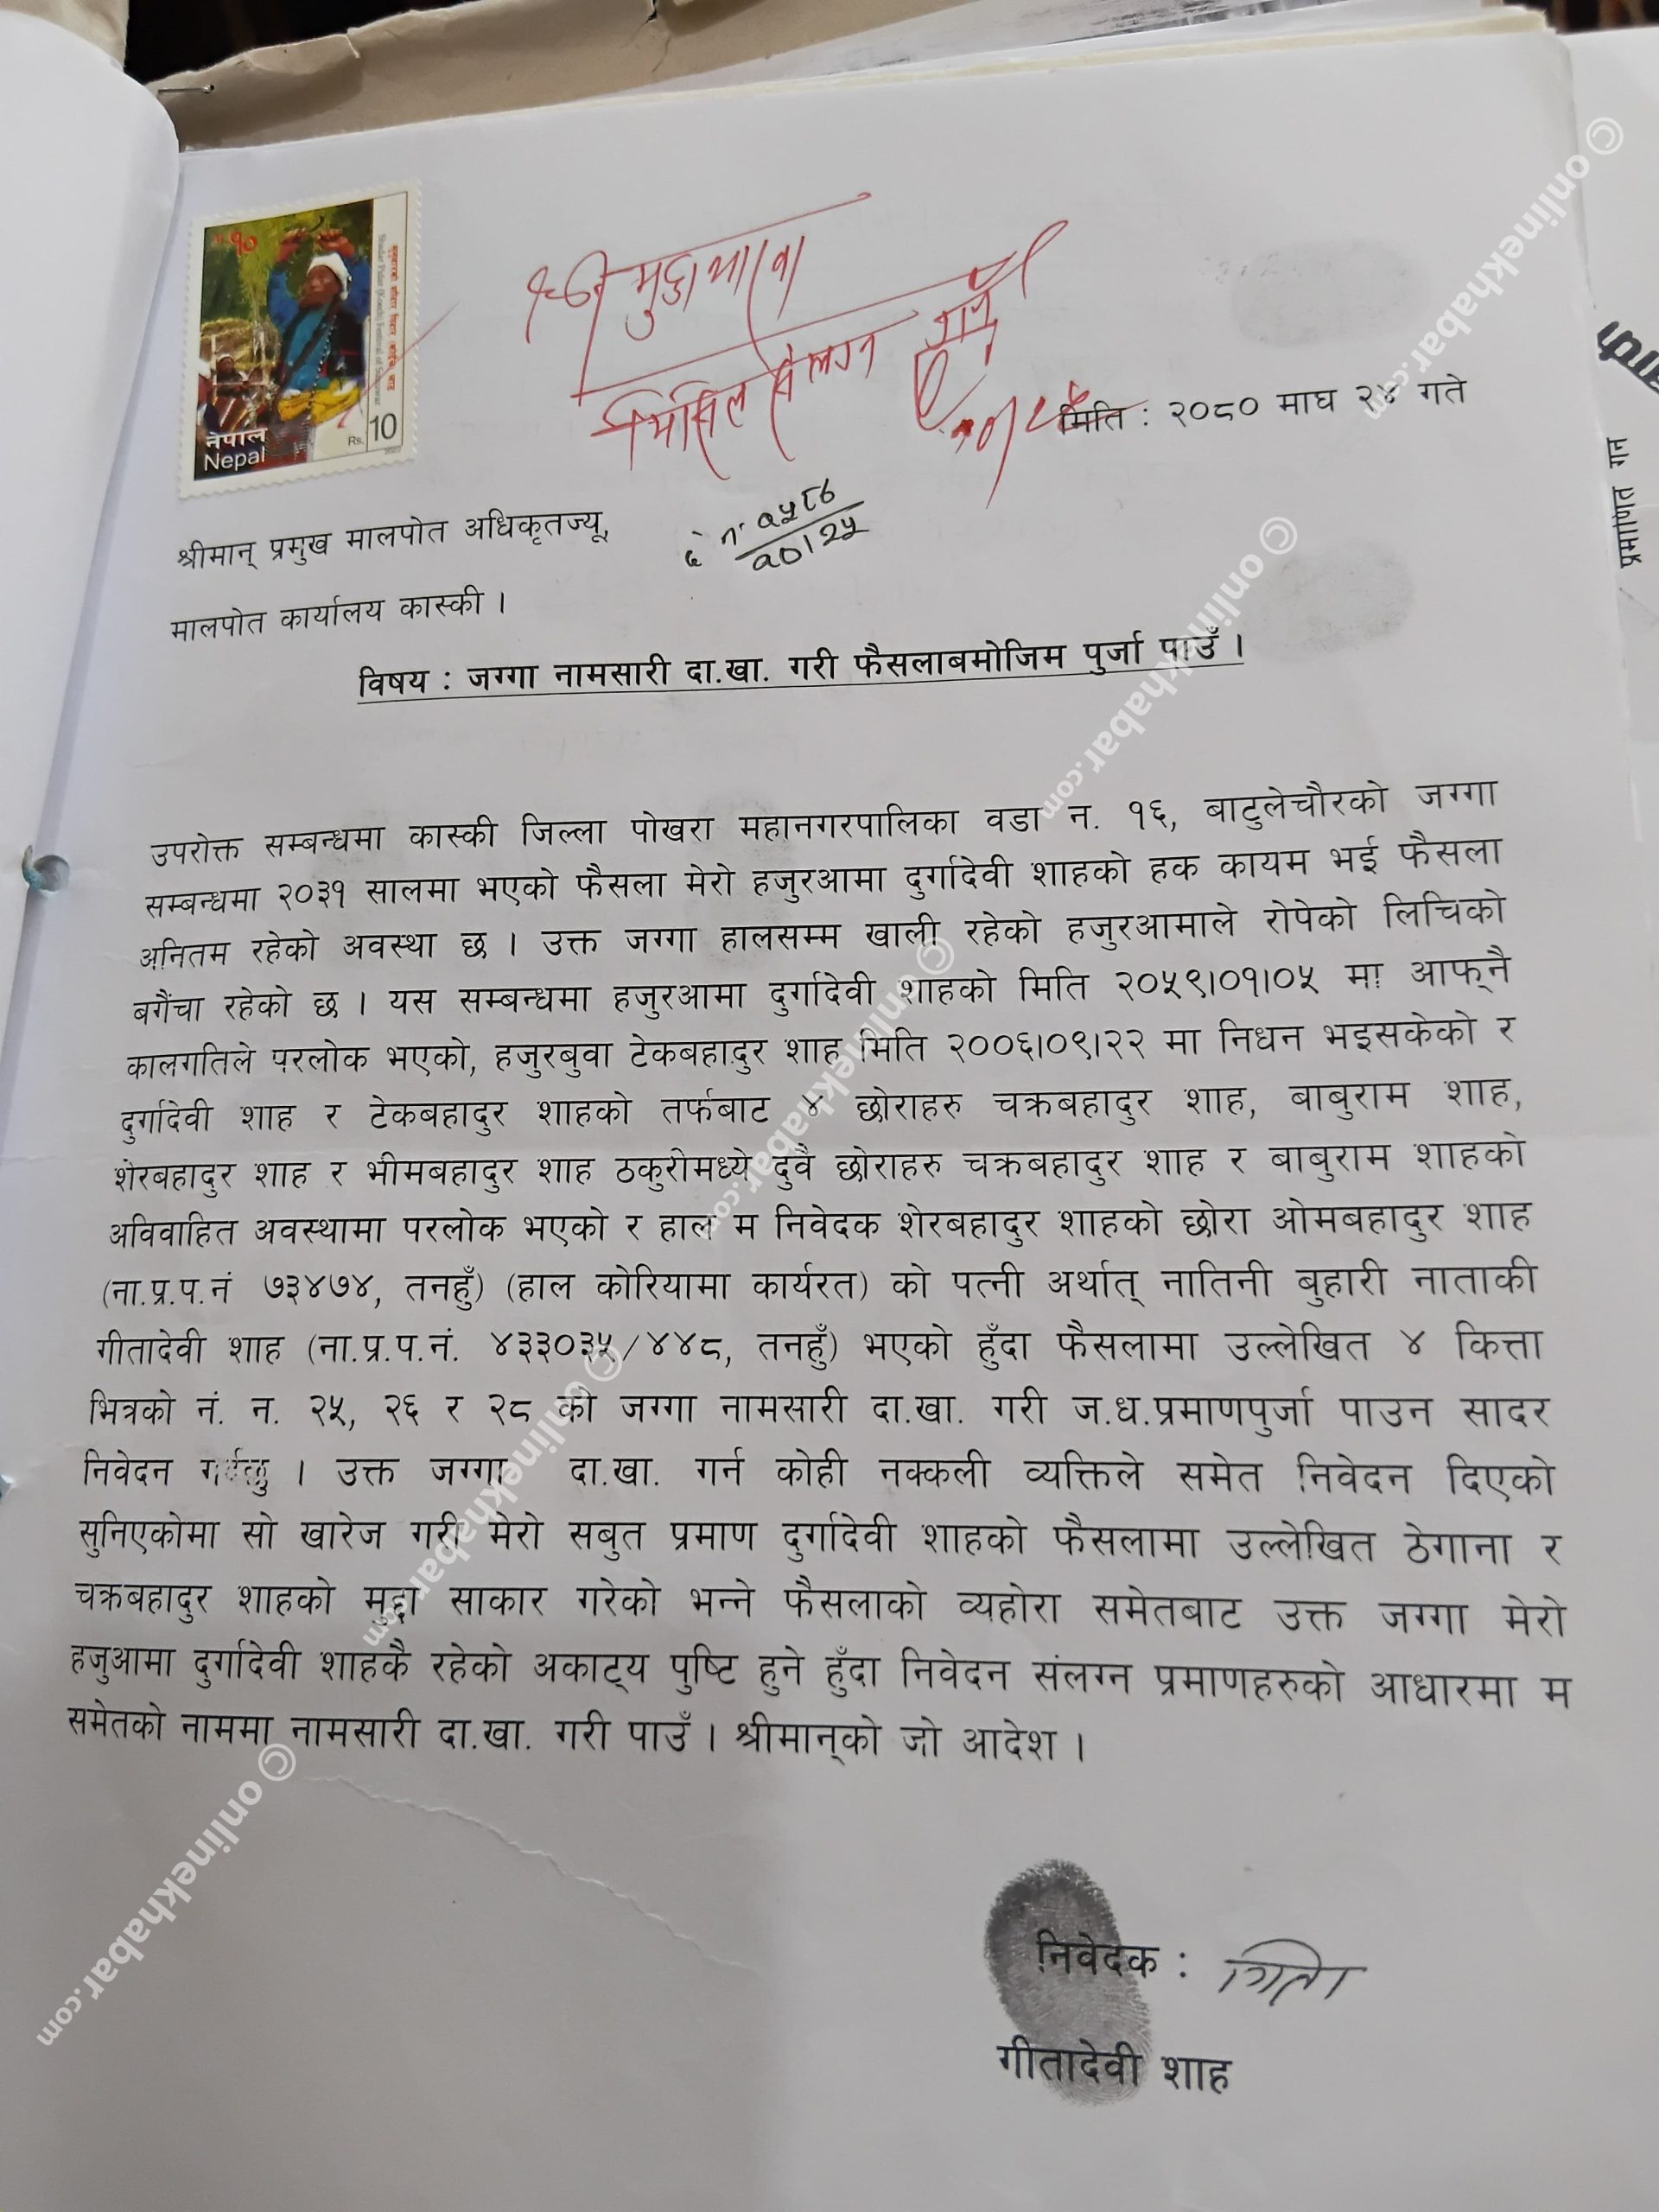 रु.१०
नेपाल
Nepal
Rs. 10
मुद्दा
मिसिल संलग्न
मिति : २०८० माघ २४ गते
श्रीमान् प्रमुख मालपोत अधिकृतज्यू,
मालपोत कार्यालय कास्की ।
विषय : जग्गा नामसारी दा.खा. गरी फैसलाबमोजिम पुर्जा पाउँ ।
उपरोक्त सम्बन्धमा कास्की जिल्ला पोखरा महानगरपालिका वडा न. १६, बाटुलेचौरको जग्गा
सम्बन्धमा २०३१ सालमा भएको फैसला मेरो हजुरआमा दुर्गादेवी शाहको हक कायम भई फैसला
अनितम रहेको अवस्था छ । उक्त जग्गा हालसम्म खाली रहेको हजुरआमाले रोपेको लिचिको
बगैंचा रहेको छ । यस सम्बन्धमा हजुरआमा दुर्गादेवी शाहको मिति २०५९।०१।०५ मा आफ्नै
कालगतिले परलोक भएको, हजुरबुवा टेकबहादुर शाह मिति २००६।०९।२२ मा निधन भइसकेको र
दुर्गादेवी शाह र टेकबहादुर शाहको तर्फबाट ४ छोराहरु चक्रबहादुर शाह, बाबुराम शाह,
शेरबहादुर शाह र भीमबहादुर शाह ठकुरीमध्ये दुवै छोराहरु चक्रबहादुर शाह र बाबुराम शाहको
अविवाहित अवस्थामा परलोक भएको र हाल म निवेदक शेरबहादुर शाहको छोरा ओमबहादुर शाह
(ना.प्र.प.नं ७३४७४, तनहुँ) (हाल कोरियामा कार्यरत) को पत्नी अर्थात् नातिनी बुहारी नाताकी
गीतादेवी शाह (ना.प्र.प.नं. ४३३०३५/४४८, तनहुँ) भएको हुँदा फैसलामा उल्लेखित ४ कित्ता
भित्रको नं. न. २५, २६ र २८ को जग्गा नामसारी दा.खा. गरी ज.ध.प्रमाणपुर्जा पाउन सादर
निवेदन गर्दछु । उक्त जग्गा दा.खा. गर्न कोही नक्कली व्यक्तिले समेत निवेदन दिएको
सुनिएकोमा सो खारेज गरी मेरो सबुत प्रमाण दुर्गादेवी शाहको फैसलामा उल्लेखित ठेगाना र
चक्रबहादुर शाहको मुद्दा साकार गरेको भन्ने फैसलाको व्यहोरा समेतबाट उक्त जग्गा मेरो
हजुआमा दुर्गादेवी शाहकै रहेको अकाट्य पुष्टि हुने हुँदा निवेदन संलग्न प्रमाणहरुको आधारमा म
समेतको नाममा नामसारी दा.खा. गरी पाउँ । श्रीमान्को जो आदेश ।
निवेदक : गिता
गीतादेवी शाह
प्रमाणित गर्ने
© onlinekhabar.com
© onlinekhabar.com
© onlinekhabar.com
© onlinekhabar.com
© onlinekhabar.com